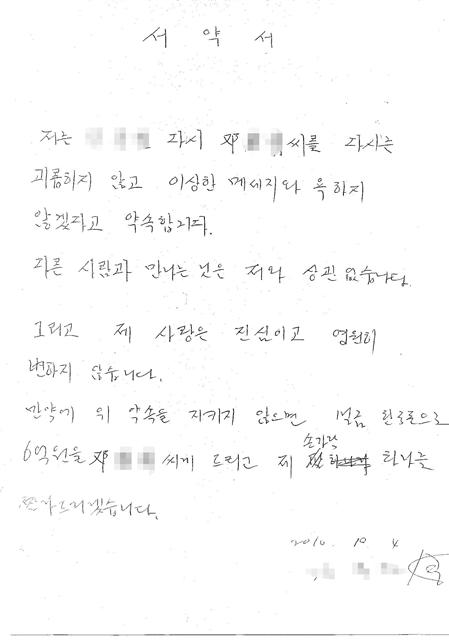 서 약 서
저는 다시 씨를 다시는
괴롭히지 않고 이상한 메세지와 욕하지
않겠다고 약속합니다.
다른 사람과 만나는 것은 저와 상관 없습니다.
그리고 제 사랑은 진심이고 영원히
변하지 않습니다.
만약에 위 약속을 지키지 않으면 벌금 한국돈으로
6억원을 씨께 드리고 제 손가락 하나를
드리겠습니다.
2010. 10. 4